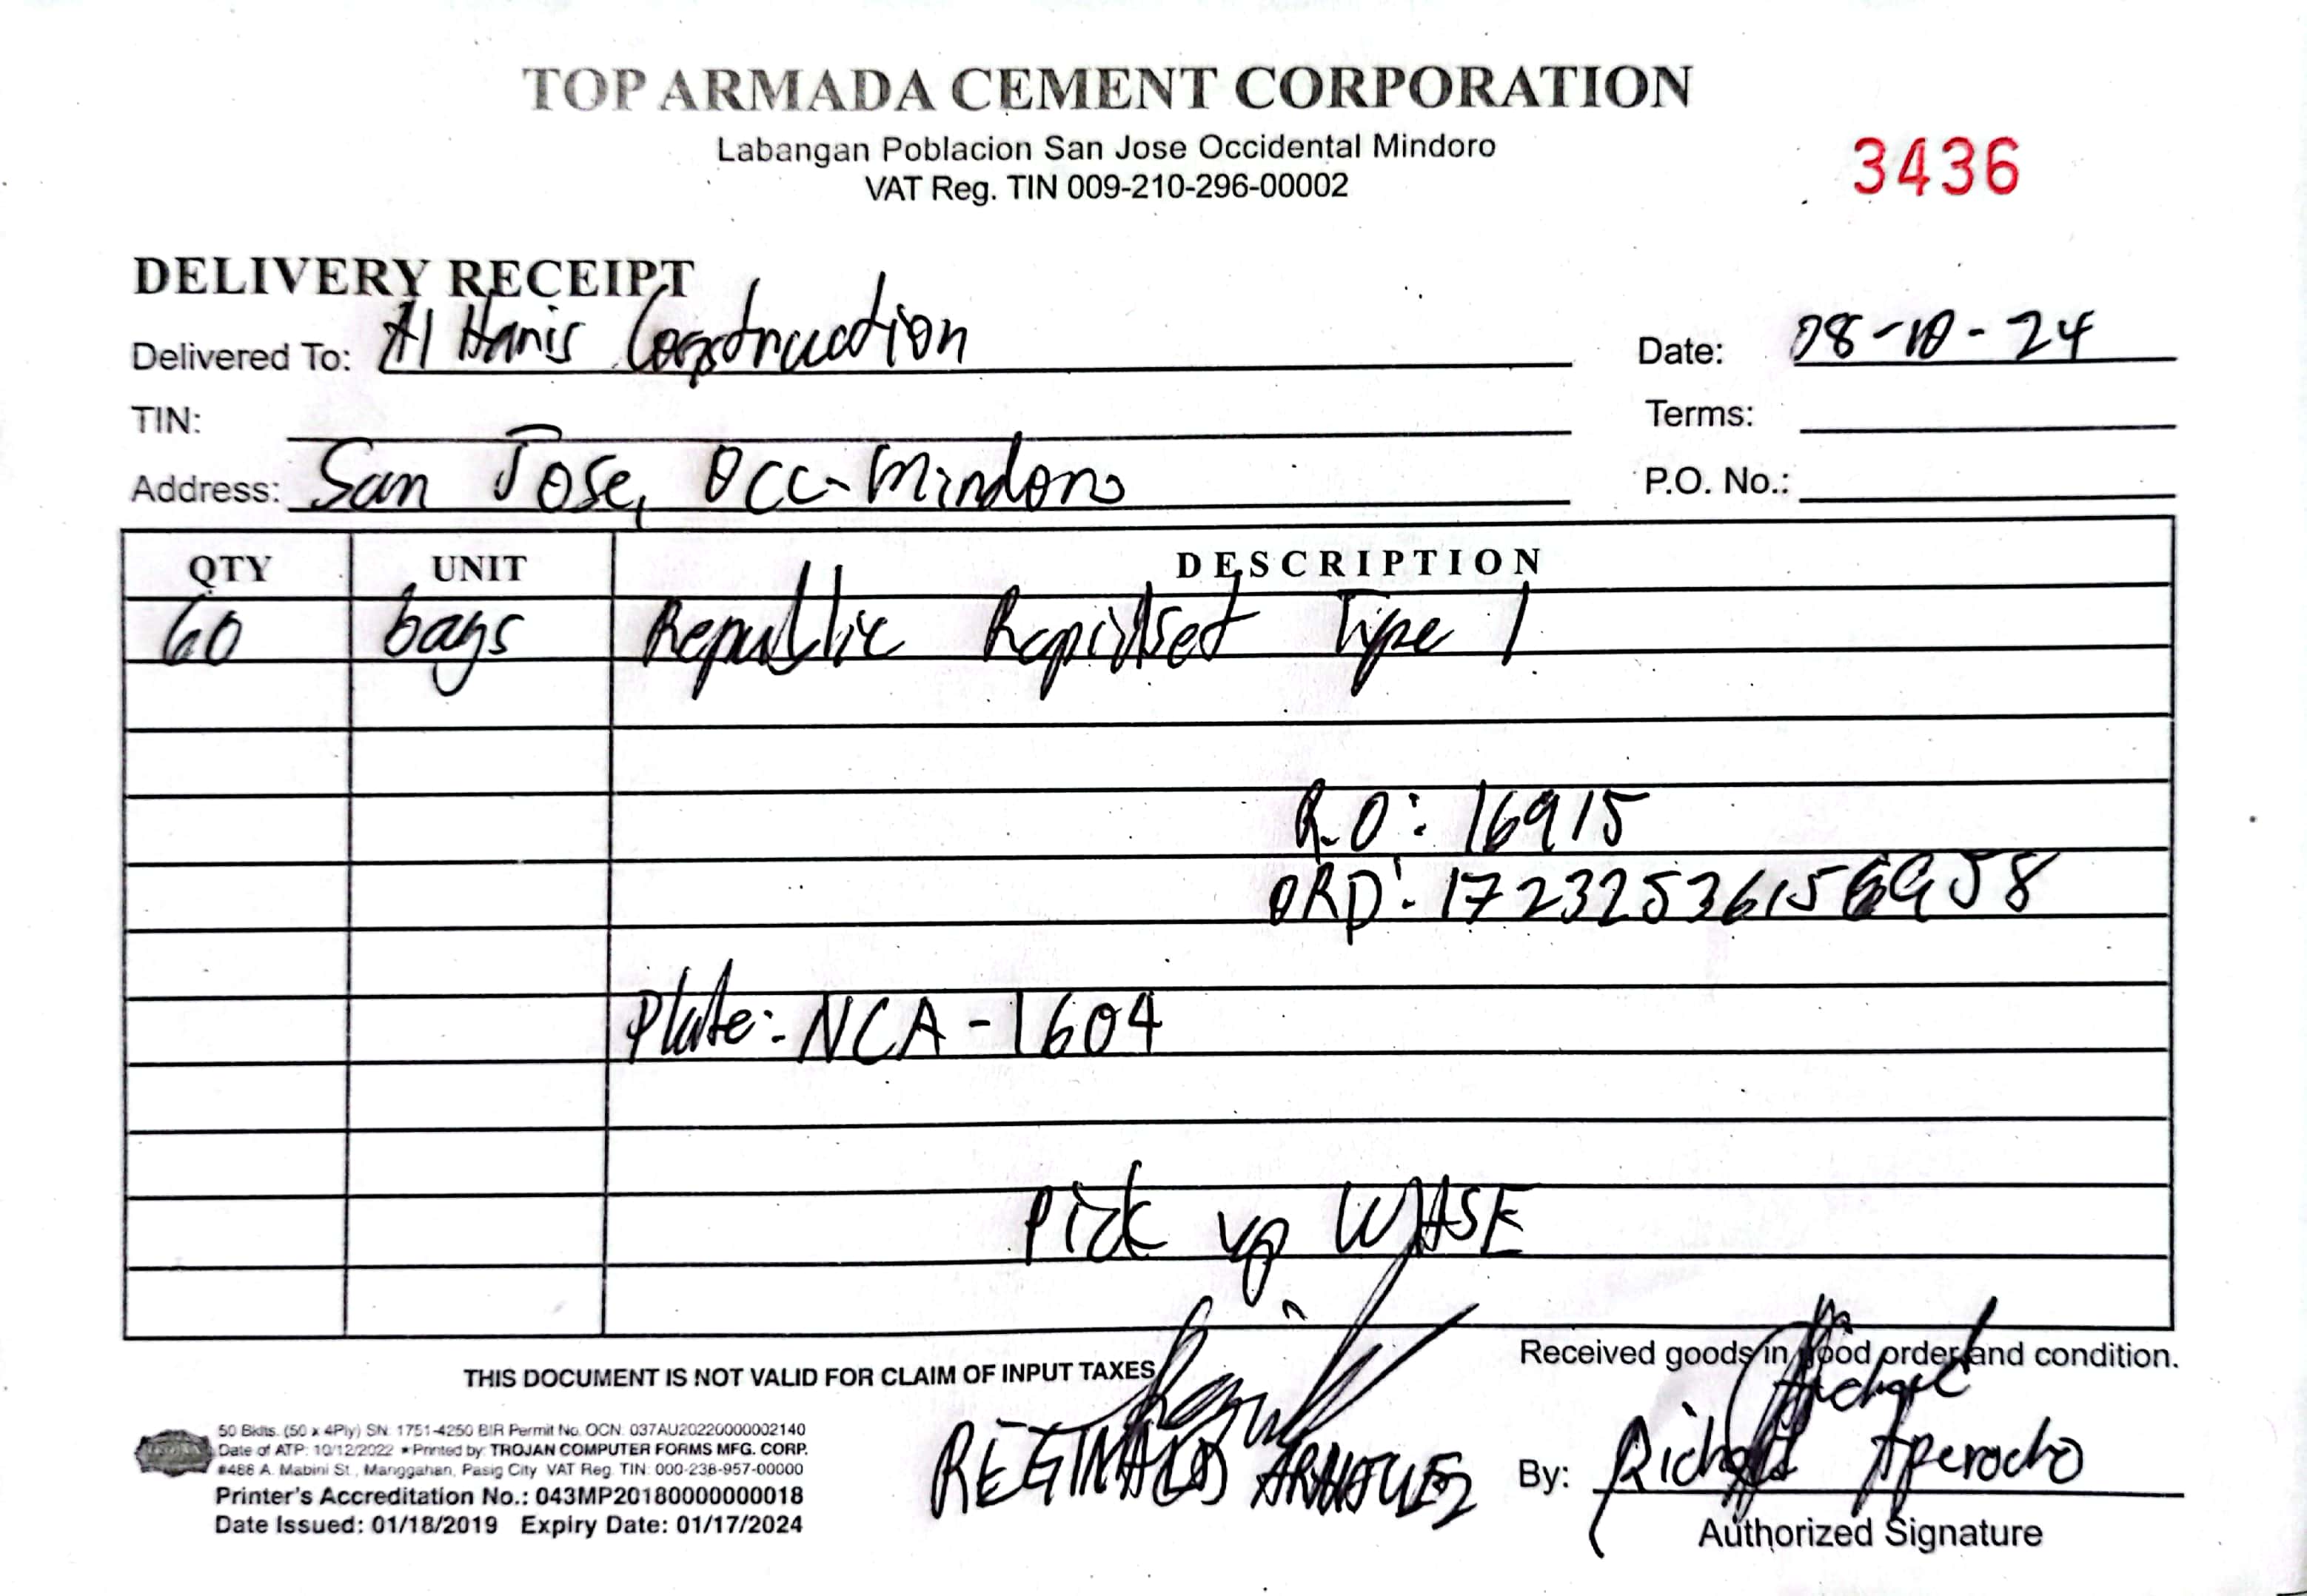 TOP ARMADA CEMENT CORPORATION
Labangan Poblacion San Jose Occidental Mindoro
VAT Reg. TIN 009-210-296-00002
3436
DELIVERY RECEIPT
Delivered To: Al Hanis Construction
Date: 08-10-24
TIN:
Terms:
Address: San Jose, Occ-Mindoro
P.O. No.:
QTY UNIT DESCRIPTION
60 bags Republic Rapidset Type 1
R.O: 16915
ORD: 17232536156958
Plate: NCA-1604
Pick up WHSE
THIS DOCUMENT IS NOT VALID FOR CLAIM OF INPUT TAXES
Received goods in good order and condition.
50 Bklts. (50 x 4Ply) SN: 1751-4250 BIR Permit No. OCN: 037AU20220000002140
Date of ATP: 10/12/2022 • Printed by: TROJAN COMPUTER FORMS MFG. CORP.
#486 A. Mabini St., Manggahan, Pasig City VAT Reg. TIN: 000-238-957-00000
Printer's Accreditation No.: 043MP20180000000018
Date Issued: 01/18/2019 Expiry Date: 01/17/2024
REGINALD
By: Richael Aperocho
Authorized Signature